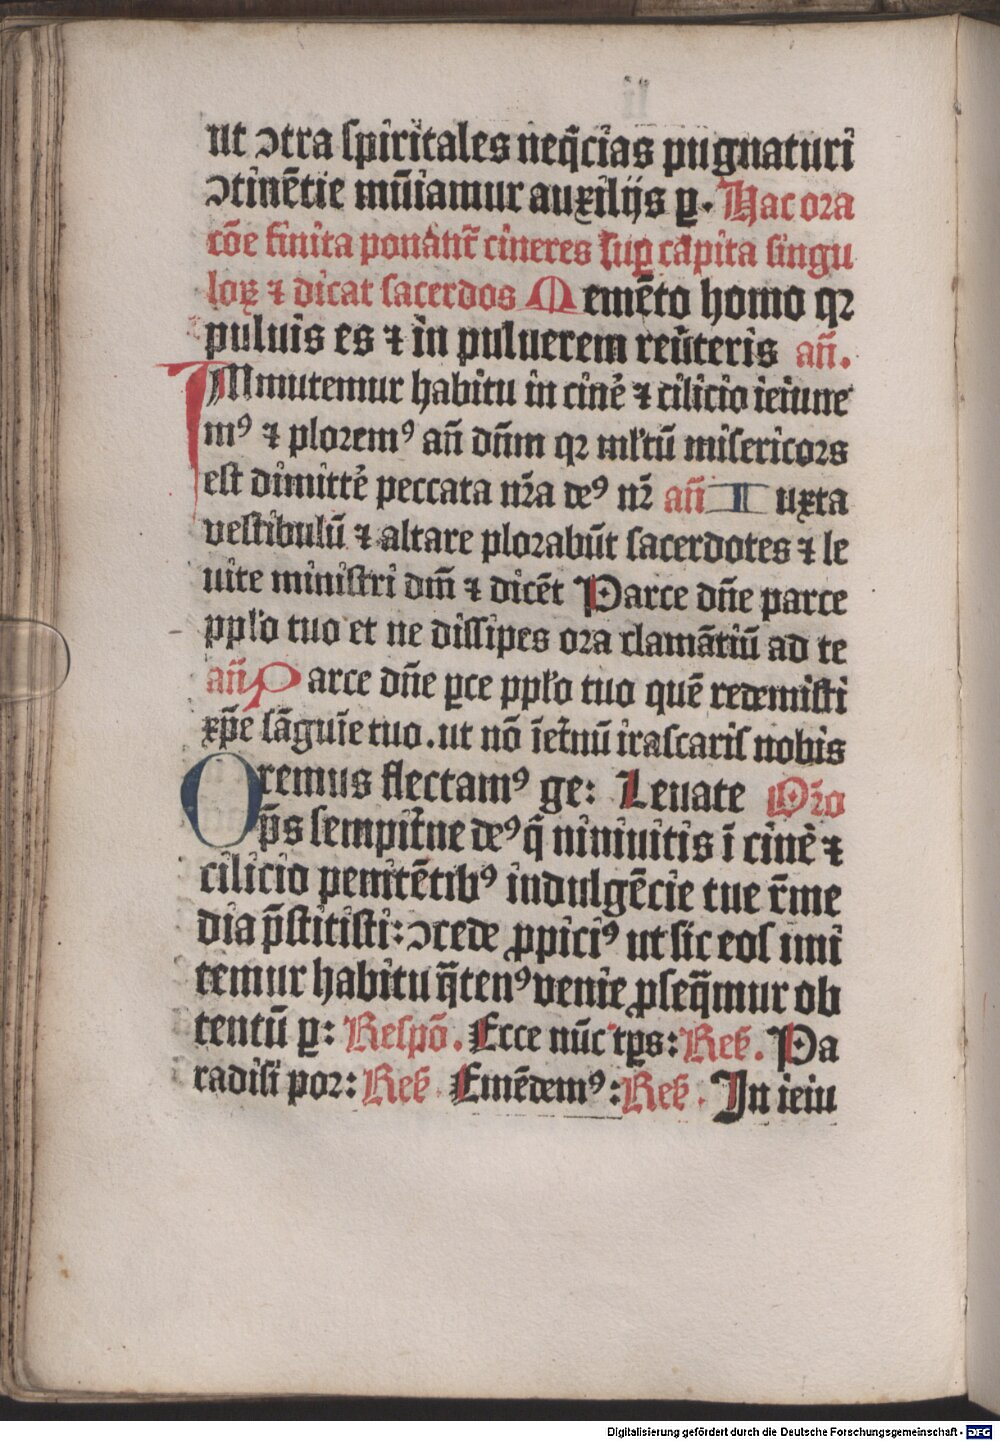 ut ɔtra ſpiritales neq̄cias pugnaturi
ɔtinētie mūiamur auxilijs ꝑ. Hac ora
cōe finita ponant̄ cineres ſuꝑ capita ſingu
loꝝ ⁊ dicat ſacerdos Memēto homo qꝛ
puluis es ⁊ in puluerem reūteris an̄.
IMmutemur habitu in cine᷒ ⁊ cilicio ieiune
mꝰ ⁊ ploꝛemꝰ an̄ dn̄m qꝛ ml̄tū miſericoꝛs
eſt dimitte᷒ peccata nr̄a deꝰ nr̄ an̄ Iuxta
veſtibulū ⁊ altare ploꝛabūt ſacerdotes ⁊ le
uite miniſtri dm̄ ⁊ dicēt Parce dn̄e parce
ppl̄o tuo et ne diſſipes oꝛa clamātiū ad te
an̄ Parce dn̄e ꝑce ppl̄o tuo quē redemiſti
xp̄e ſāguīe tuo. ut nō īet̄nū iraſcariſ nobis
Oremus flectamꝰ ge: Leuate Or̄o
Op̄s ſempit̄ne deꝰ q̄ niniuitis ī cine᷒ ⁊
cilicio penitētibꝰ indulgēcie tue r̄me
dia p̄ſtitiſti: ɔcede ꝓpiciꝰ ut ſic eoſ imi
temur habitu q̄tenꝰ venie ꝓſeq̄mur ob
tentū ꝑ: Reſpō. Ecce nūc tꝑs: Reſ. Pa
radiſi poꝛ: Reſ Emēdemꝰ: Reſ. In ieiu
Digitalisierung gefördert durch die Deutsche Forschungsgemeinschaft - DFG